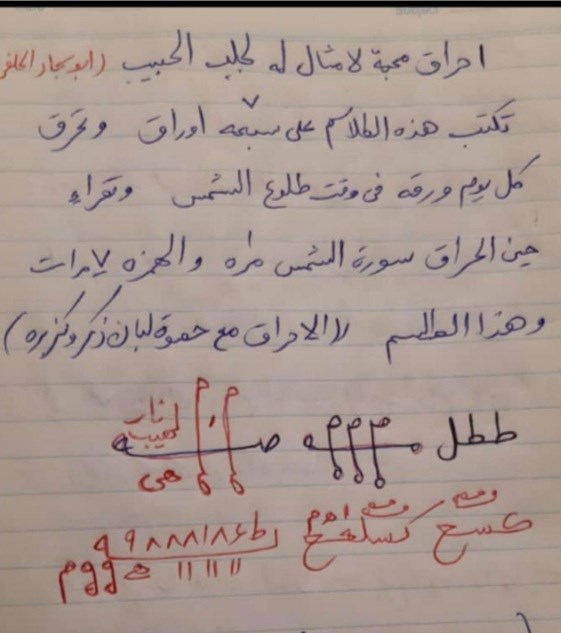 احراق محبة لا مثال له لجلب الحبيب (ابو سجاد الخلفر
تكتب هذه الطلاسم على سبعه ٧ اوراق وتحرق
كل يوم ورقه فى وقت طلوع الشمس وتقراء
حين الحراق سورة الشمس مره والهمزه ٧ مرات
وهذا الطلسم (الاحراق مع حصوة لبان ذكر وكزبره)
ططل
نار
لهيب
هى